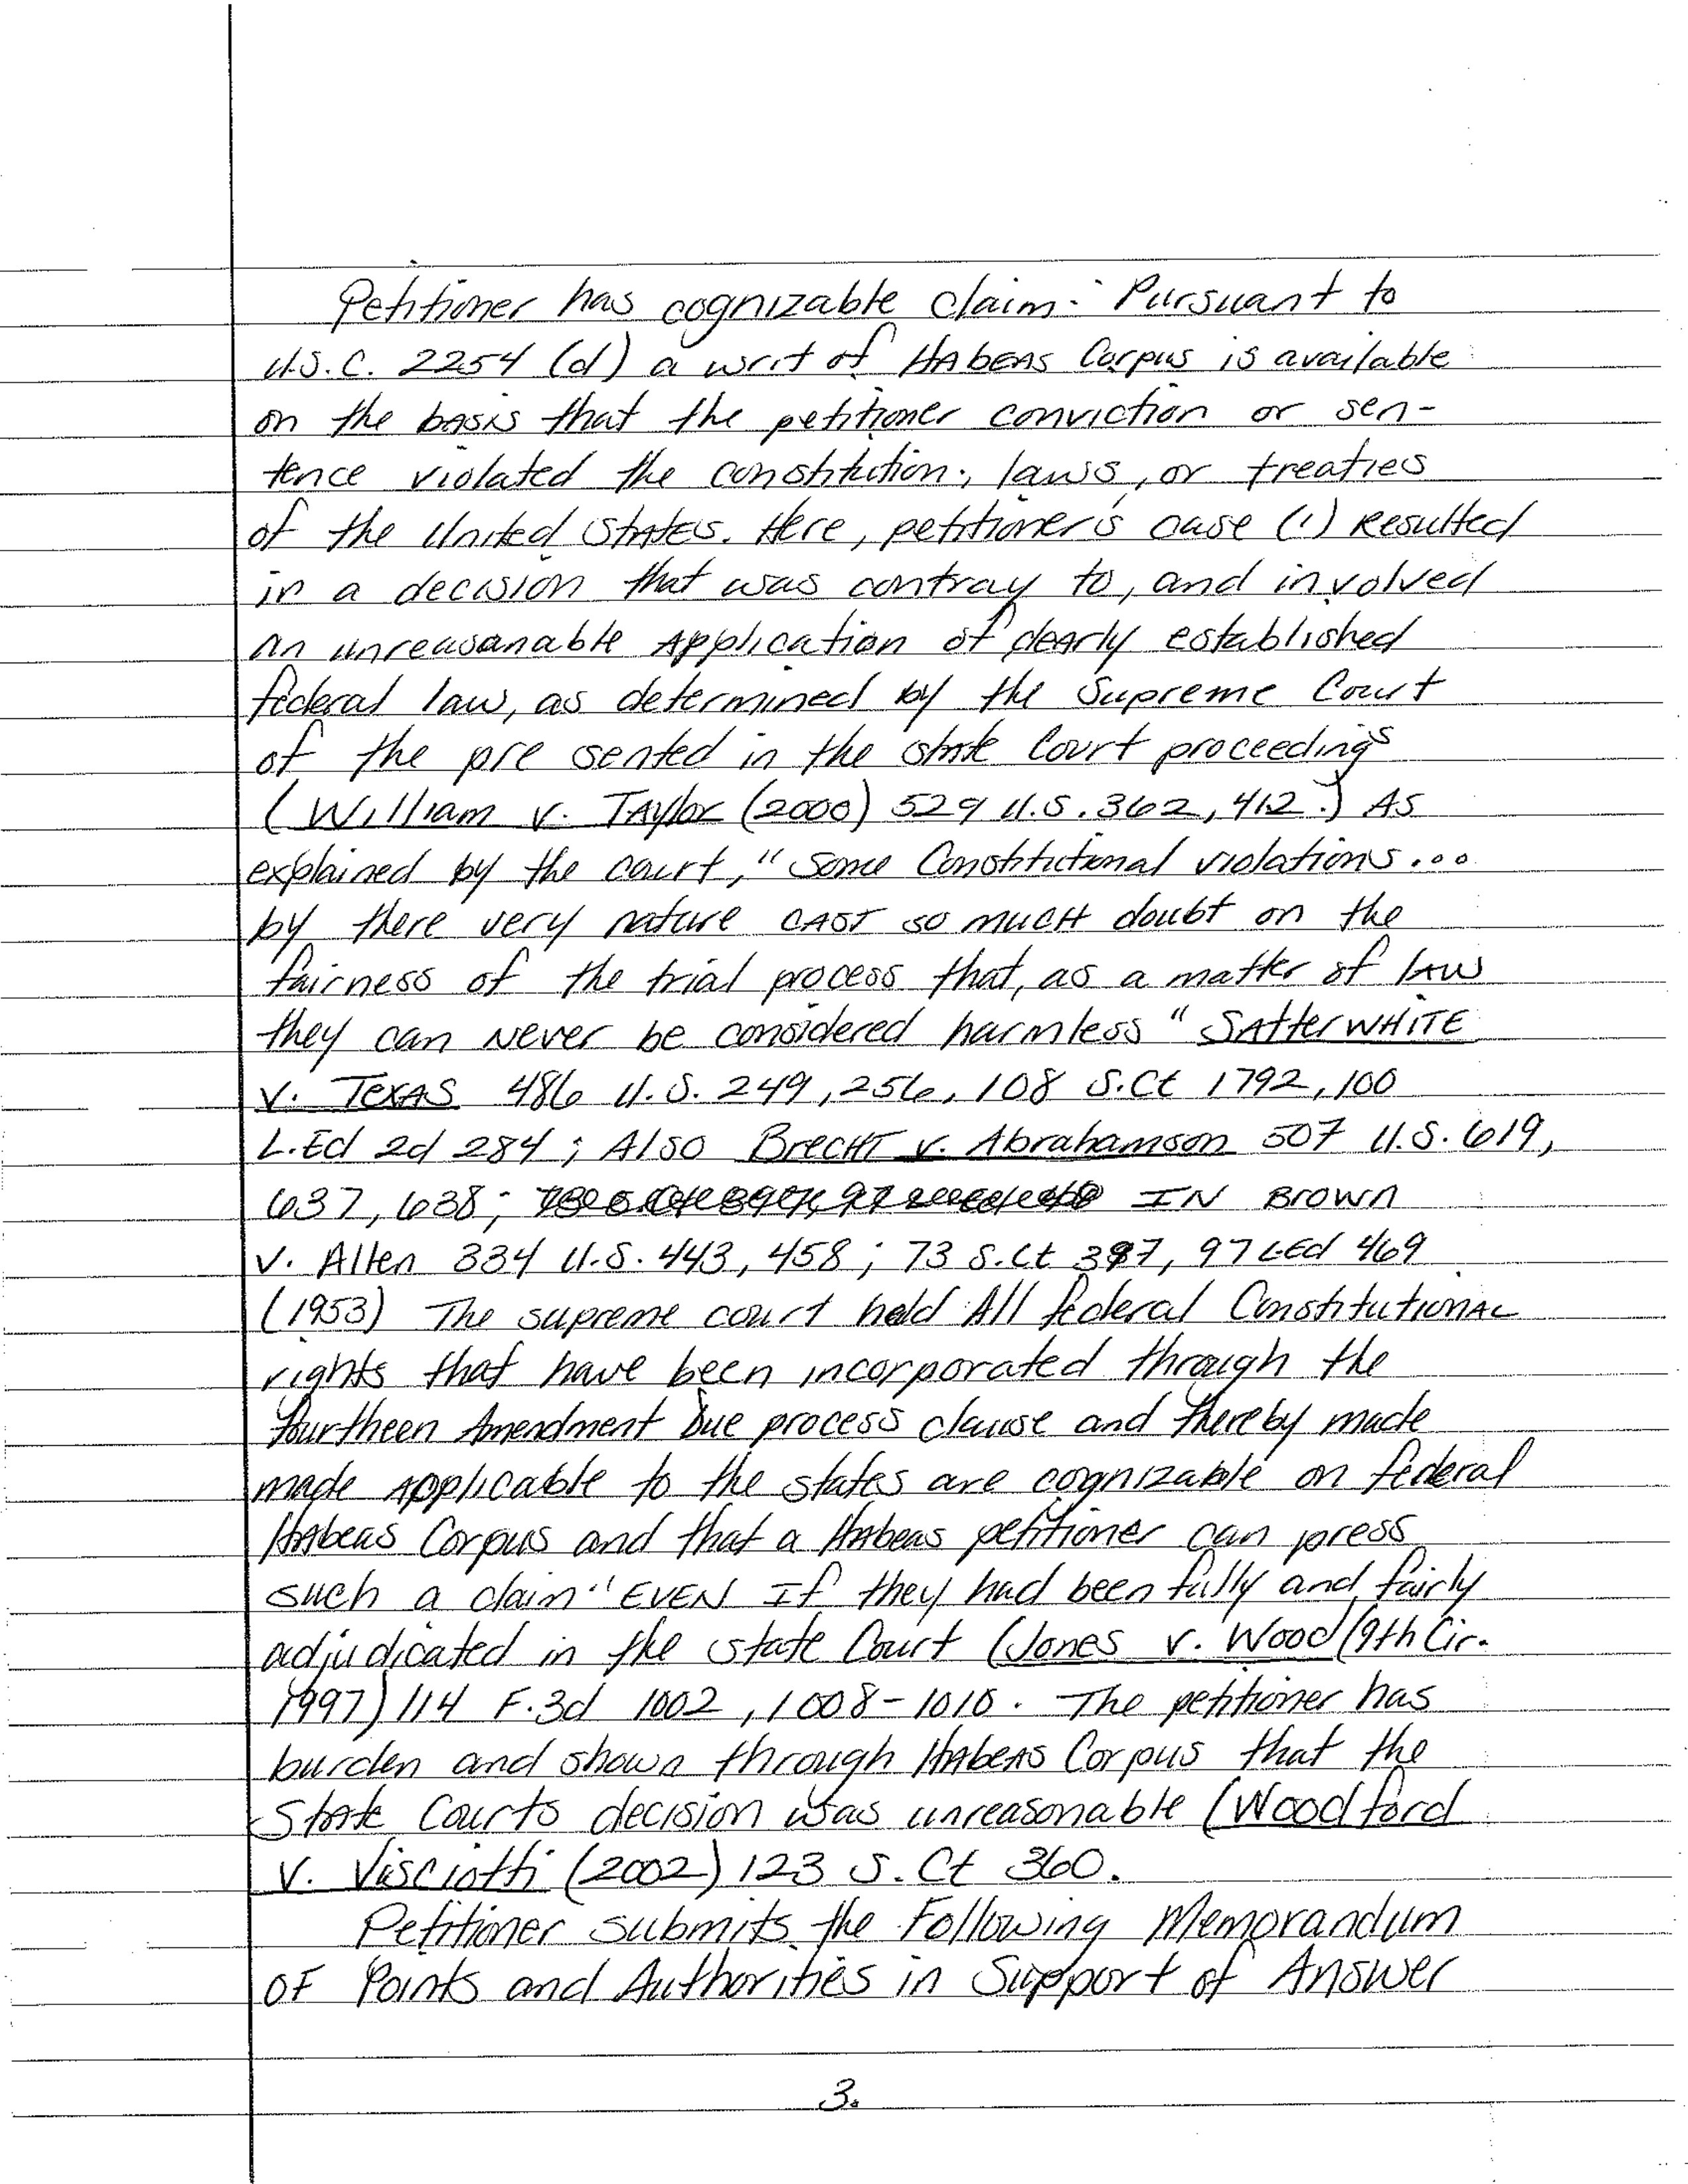 Petitioner has cognizable claim: Pursuant to
U.S.C. 2254 (d) a writ of HABEAS Corpus is available
on the basis that the petitioner conviction or sen-
tence violated the constitution, laws, or treaties
of the United States. Here, petitioner's case (1) Resulted
in a decision that was contray to, and involved
an unreasanable Application of clearly established
federal law, as determined by the Supreme Court
of the pre sented in the state Court proceedings
(William v. TAylor (2000) 529 U.S. 362, 412.) AS
explained by the court, "Some Constitutional violations...
by there very nature CAST so MUCH doubt on the
fairness of the trial process that, as a matter of law
they can NEVER be considered harmless" SAtterWHITE
v. TexAS 486 U.S. 249, 256, 108 S.Ct 1792, 100
L.Ed 2d 284; Also BrecHT v. Abrahamson 507 U.S. 619,
637, 638; IN Brown
v. Allen 334 U.S. 443, 458; 73 S.Ct 397, 97 L.Ed 469
(1953) The supreme court held All federal ConstitutIONAL
rights that have been incorporated through the
fourtheen Amendment Due process clause and thereby made
made Applicable to the states are cognizable on federal
HAbeas Corpus and that a HAbeas petitioner can press
such a claim "EVEN If they had been fully and fairly
adjudicated in the state Court (Jones v. Wood (9th Cir.
1997) 114 F.3d 1002, 1008-1010. The petitioner has
burden and shown through HAbeAS Corpus that the
State Courts decision was unreasonable (Woodford
v. Visciotti (2002) 123 S. Ct 360.
Petitioner submits the Following Memorandum
OF Points and Authorities in Support of Answer
3.